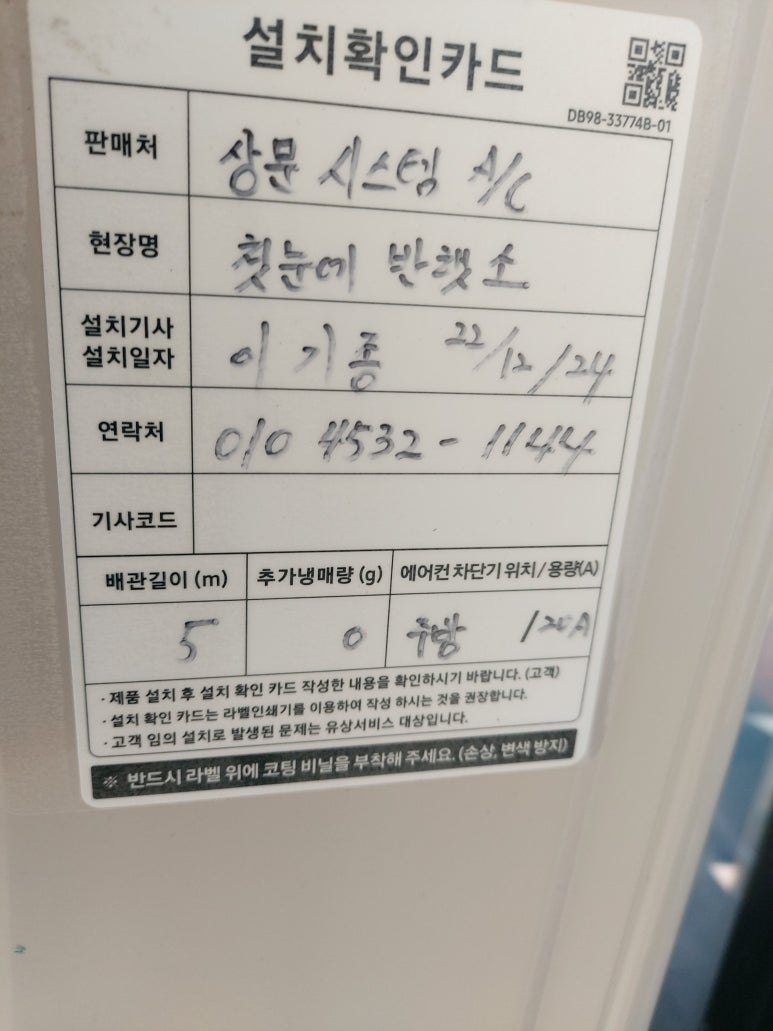 설치확인카드
DB98-33774B-01
판매처 상문 시스템 A/C
현장명 첫눈에 반했소
설치기사 설치일자 이기종 22/12/24
연락처 010 4532-1144
기사코드
배관길이 (m) 추가냉매량 (g) 에어컨 차단기 위치/용량(A)
5 0 주방 /20A
· 제품 설치 후 설치 확인 카드 작성한 내용을 확인하시기 바랍니다. (고객)
· 설치 확인 카드는 라벨인쇄기를 이용하여 작성 하시는 것을 권장합니다.
· 고객 임의 설치로 발생된 문제는 유상서비스 대상입니다.
※ 반드시 라벨 위에 코팅 비닐을 부착해 주세요. (손상, 변색 방지)